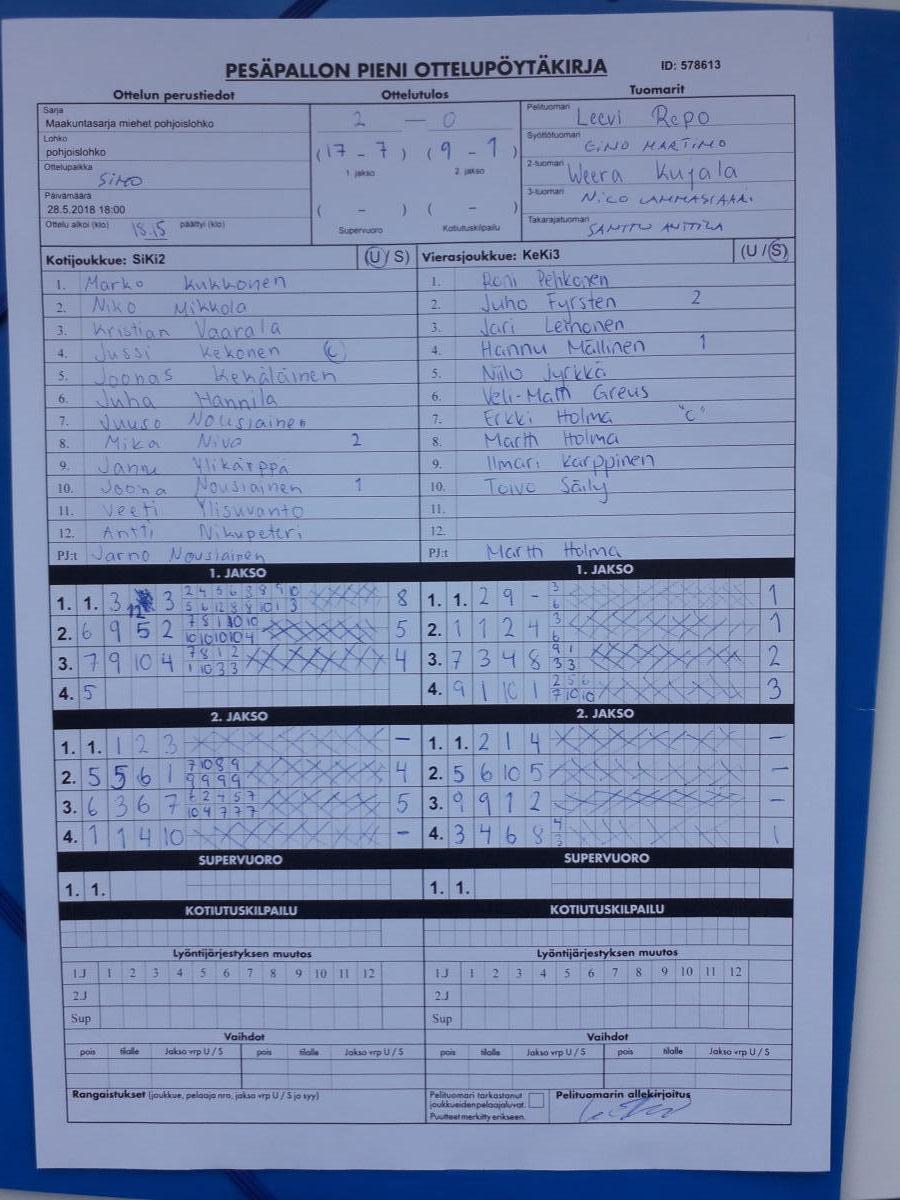 PESÄPALLON PIENI OTTELUPÖYTÄKIRJA ID: 578613
Ottelun perustiedot Ottelutulos Tuomarit
Sarja
Maakuntasarja miehet pohjoislohko
Lohko
pohjoislohko
Ottelupaikka
SIMO
Päivämäärä
28.5.2018 18:00
Ottelu alkoi (klo) 18.15 päättyi (klo)
2 — 0
(17 - 7) (9 - 1)
1. jakso 2. jakso
( - ) ( - )
Supervuoro Kotiutuskilpailu
Pelituomari Leevi Repo
Syöttötuomari GINO MARTIMO
2-tuomari Weera Kujala
3-tuomari NICO LAMMASSAARI
Takarajatuomari SANTTU ANTTILA
Kotijoukkue: SiKi2 (U/S)
1. Marko Kukkonen
2. Niko Mikkola
3. Kristian Vaarala
4. Jussi Kekonen (C)
5. Joonas Kehäläinen
6. Juha Hannila
7. Juuso Nousiainen
8. Mika Niva 2
9. Jannu Ylikärppä
10. Joona Nousiainen 1
11. Veeti Ylisuvanto
12. Antti Nikupeteri
PJ:t Jarno Nousiainen
Vierasjoukkue: KeKi3 (U/S)
1. Roni Pehkonen
2. Juho Fyrsten 2
3. Jari Leinonen
4. Hannu Mällinen 1
5. Niilo Jyrkkä
6. Veli-Matti Greus
7. Erkki Holma "C"
8. Martti Holma
9. Ilmari Karppinen
10. Toivo Säily
11.
12.
PJ:t Martti Holma
1. JAKSO
1. 1. 3 12 3 8
2. 6 9 5 2 7 8 1 10 10 5
10 10 10 10 4
3. 7 9 10 4 7 8 1 2 4
1 10 3 3
4. 5
1. JAKSO
1. 1. 2 9 - 3 1
6
2. 1 1 2 4 3 1
6
3. 7 3 4 8 9 1 2
3 3
4. 9 1 10 1 2 5 6 3
7 10 10
2. JAKSO
1. 1. 1 2 3 –
2. 5 5 6 1 7 10 8 9 4
9 9 9 9
3. 6 3 6 7 5
10 4 7 7 7
4. 1 1 4 10 –
2. JAKSO
1. 1. 2 1 4 –
2. 5 6 10 5 –
3. 9 9 1 2 –
4. 3 4 6 8 4 1
3
SUPERVUORO SUPERVUORO
1. 1. 1. 1.
KOTIUTUSKILPAILU KOTIUTUSKILPAILU
Lyöntijärjestyksen muutos Lyöntijärjestyksen muutos
1.J 1 2 3 4 5 6 7 8 9 10 11 12 1.J 1 2 3 4 5 6 7 8 9 10 11 12
2.J 2.J
Sup Sup
Vaihdot Vaihdot
pois tilalle Jakso vrp U / S pois tilalle Jakso vrp U / S pois tilalle Jakso vrp U / S pois tilalle Jakso vrp U / S
Rangaistukset (joukkue, pelaaja nro, jakso vrp U / S ja syy)
Pelituomari tarkastanut
joukkueiden pelaajaluvat.
Puutteet merkitty erikseen.
Pelituomarin allekirjoitus